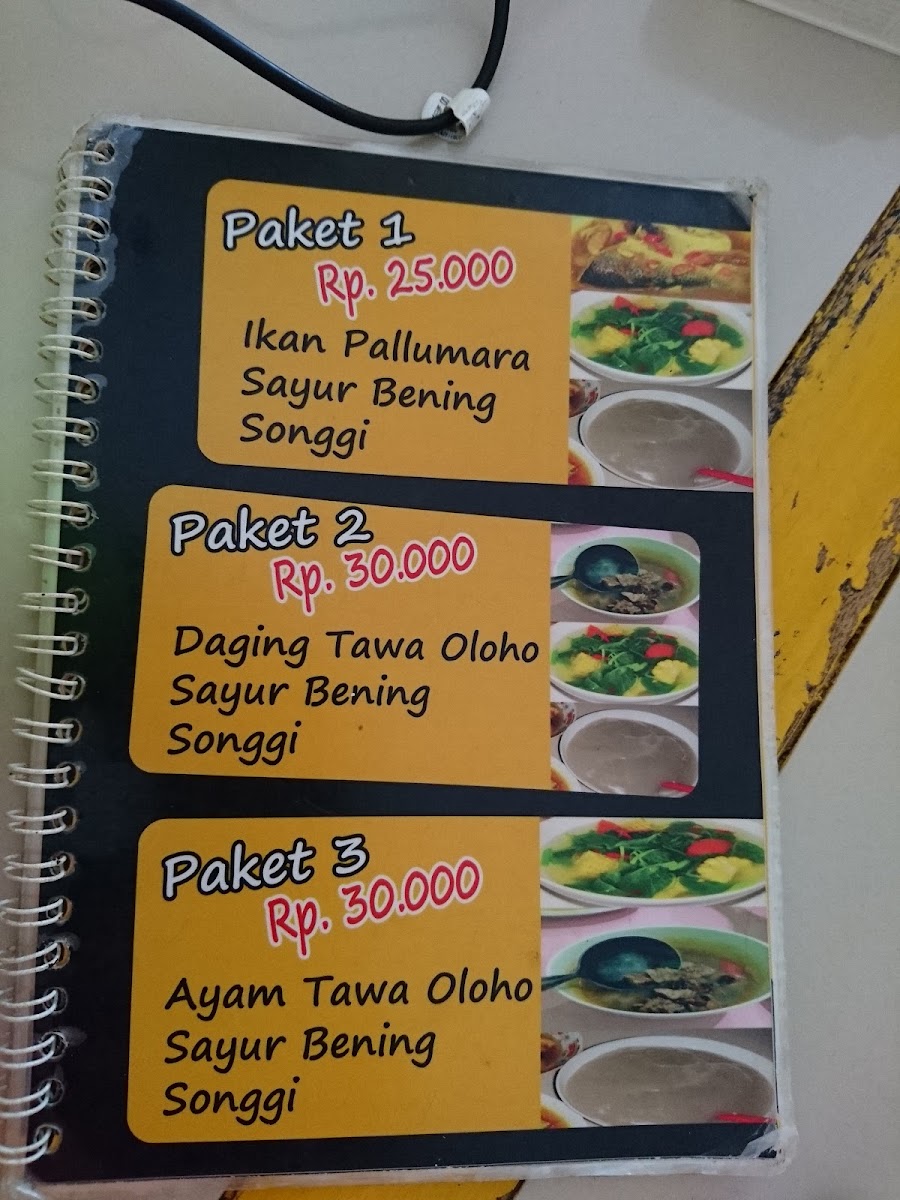 Paket 1
Rp. 25.000
Ikan Pallumara
Sayur Bening
Songgi
Paket 2
Rp. 30.000
Daging Tawa Oloho
Sayur Bening
Songgi
Paket 3
Rp. 30.000
Ayam Tawa Oloho
Sayur Bening
Songgi